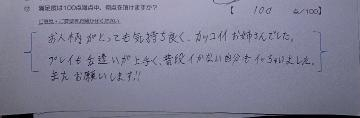 満足度は100点満点中、何点を頂けますか? 【 100 点/100】
ご意見・ご感想をお聞かせください
お人柄がとっても気持ち良く、カッコイイお姉さんでした。
プレイも言違いが上手く、普段イかない自分もイッちゃいました。
またお願いします!!